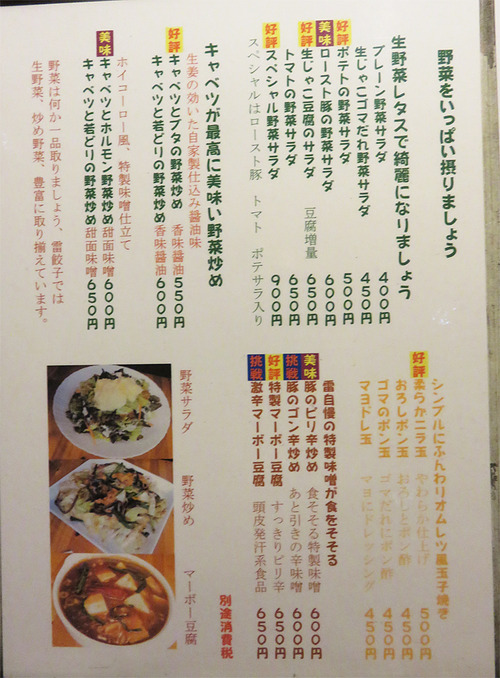 野菜をいっぱい摂りましょう
生野菜レタスで綺麗になりましょう
プレーン野菜サラダ 400円
生じゃこゴマだれ野菜サラダ 450円
好評 ポテトの野菜サラダ 500円
美味 ロースト豚の野菜サラダ 600円
好評 生じゃこ豆腐のサラダ 豆腐増量 650円
トマトの野菜サラダ 650円
好評 スペシャル野菜サラダ 900円
スペシャルはロースト豚 トマト ポテサラ入り
キャベツが最高に美味い野菜炒め
生姜の効いた自家製仕込み醤油味
好評 キャベツとブタの野菜炒め 香味醤油 550円
キャベツと若どりの野菜炒め 香味醤油 600円
ホイコーロー風、特製味噌仕立て
美味 キャベツとホルモン野菜炒め 甜面味噌 600円
キャベツと若どりの野菜炒め 甜面味噌 650円
野菜は何か一品取りましょう、雷餃子では
生野菜、炒め野菜、豊富に取り揃えています。
シンプルにふんわりオムレツ風玉子焼き
好評 柔らかニラ玉 やわらか仕上げ 500円
おろしポン玉 おろしとポン酢 450円
ゴマのポン玉 ゴマだれにポン酢 450円
マヨドレ玉 マヨにドレッシング 450円
雷自慢の特製味噌が食をそそる
美味 豚のピリ辛炒め 食そそる特製味噌 600円
挑戦 豚のゴン辛炒め あと引きの辛味噌 600円
好評 特製マーボー豆腐 すっきりピリ辛 650円
挑戦 激辛マーボー豆腐 頭皮発汗系食品 650円
別途消費税
野菜サラダ
野菜炒め
マーボー豆腐